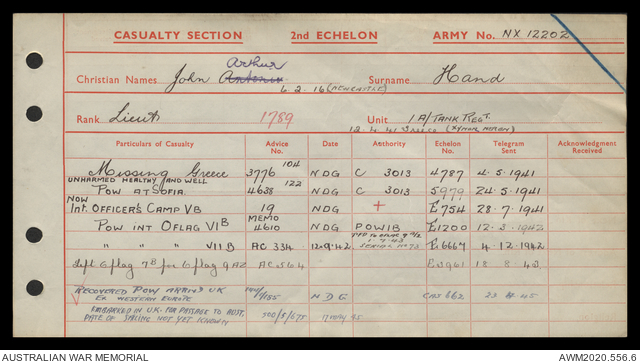 CASUALTY SECTION 2nd ECHELON ARMY No. NX 12202
Arthur
Christian Names John Antonio Surname Hand
6.2.16 (NEWCASTLE)
Rank Lieut 1789 Unit 1 A/TANK REGT.
12.4.41 Greece
Particulars of Casualty Advice No. Date Authority Echelon No. Telegram Sent Acknowledgment Received
Missing Greece 3776 104 NDG C 3013 4787 4.5.1941
UNHARMED HEALTHY AND WELL
POW AT SOFIA 4638 122 NDG C 3013 5979 24.5.1941
NOW
Int. OFFICER'S CAMP VB 19 NDG + E754 28.7.1941
POW INT OFLAG VIB MEMO 4610 POWIB E1200 12.3.1942
" " " VIIB AC 334 12.9.42 1.7.43 SERIAL No 73 E6667 4.12.1942
Left Oflag 7B for Oflag 9AZ AC 564 18 8 43
RECOVERED POW ARRIVED UK
EX WESTERN EUROPE NDG CAS 662 45
EMBARKED IN U.K. FOR PASSAGE TO AUST.
DATE OF SAILING NOT YET KNOWN 45
AUSTRALIAN WAR MEMORIAL AWM2020.556.6